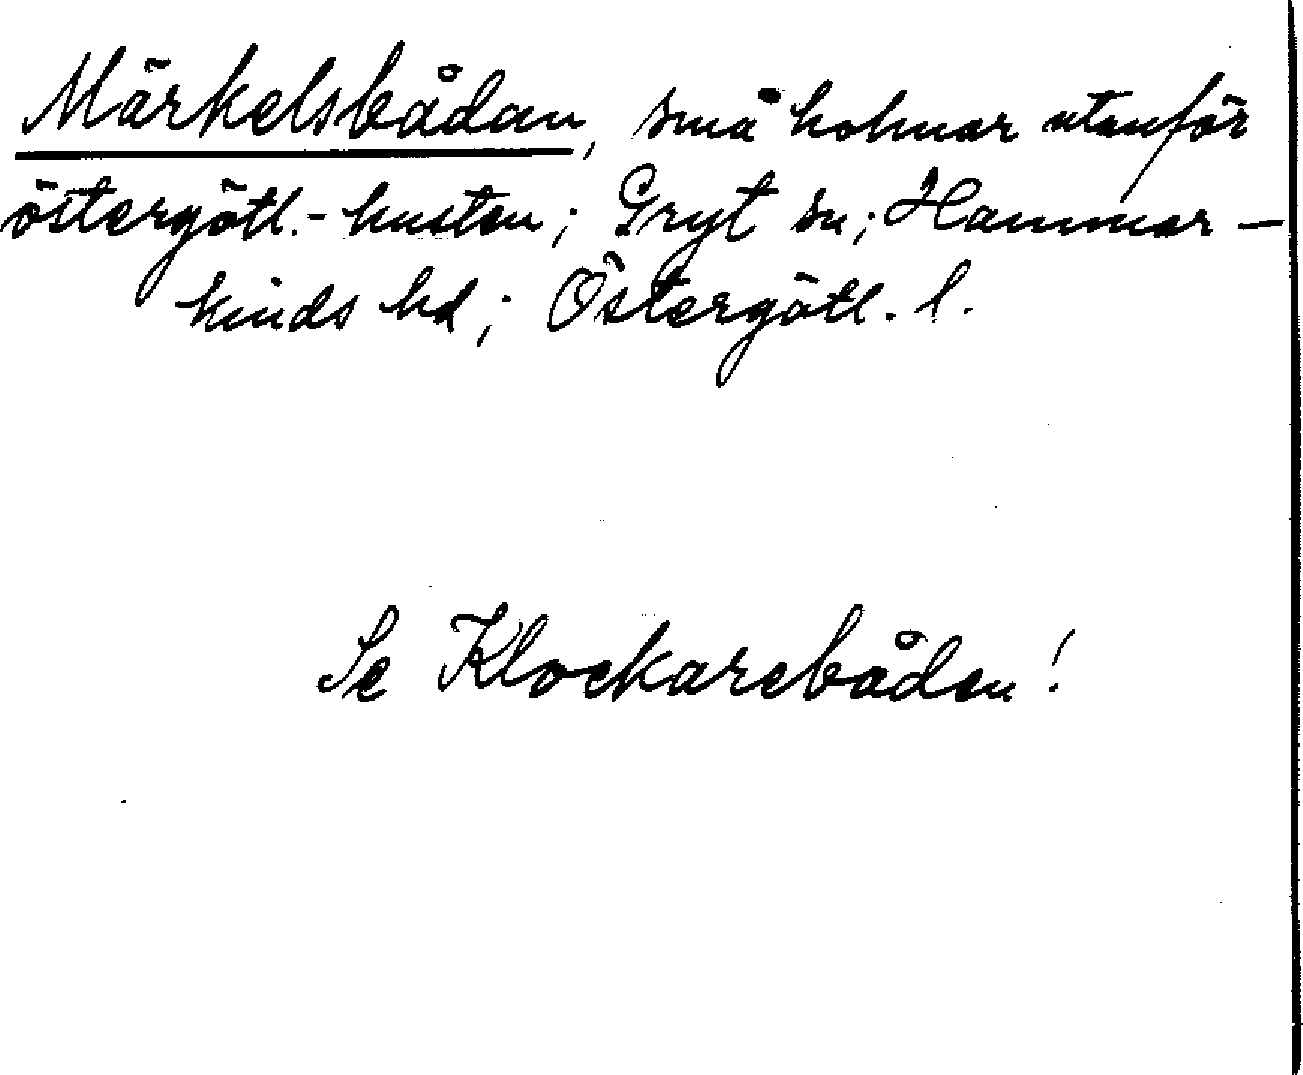 Märkelsbådan, små holmar utanför
östergötl.-kusten; Gryt sn; Hammar-
kinds hd; Östergötl. l.
Se Klockarebåden!